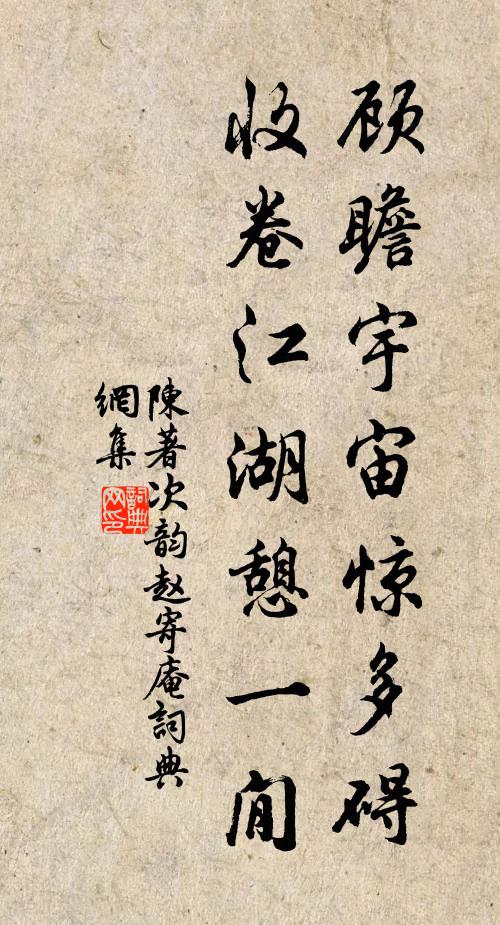 顾瞻宇宙惊多碍
收卷江湖憩一闲
陳著次韵赵寄庵詞典
網集
詞典网印